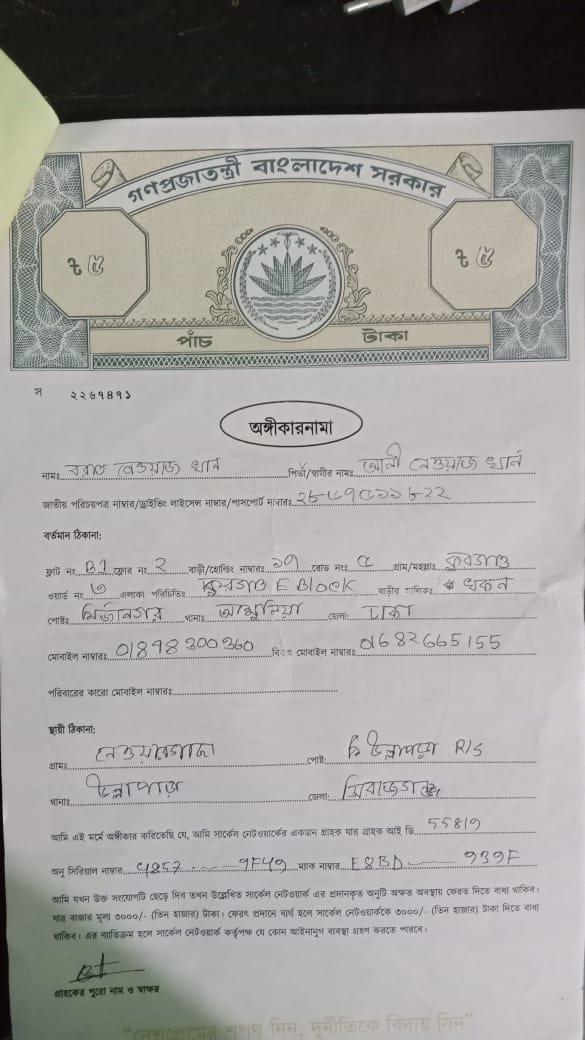 গণপ্রজাতন্ত্রী বাংলাদেশ সরকার
৳ ৫ ৳ ৫
পাঁচ টাকা
স ২২৬৭৪৭১
অঙ্গীকারনামা
নামঃ নেওয়াজ খান পিতা/স্বামীর নামঃ আলী নেওয়াজ খান
জাতীয় পরিচয়পত্র নাম্বার/ড্রাইভিং লাইসেন্স নাম্বার/পাসপোর্ট নাম্বারঃ
বর্তমান ঠিকানা:
ফ্লাট নং B1 ফ্লোর নং 2 বাড়ী/হোল্ডিং নাম্বারঃ রোড নংঃ ৫ গ্রাম/মহল্লাঃ
ওয়ার্ড নং ৩ এলাকা পরিচিতিঃ E Block বাড়ীর মালিকঃ
পোষ্টঃ মির্জানগর থানাঃ আশুলিয়া জেলাঃ ঢাকা
মোবাইল নাম্বারঃ 01898300360 মোবাইল নাম্বারঃ 01682665155
পরিবারের কারো মোবাইল নাম্বারঃ
স্থায়ী ঠিকানা:
গ্রামঃ পোষ্টঃ উল্লাপাড়া R/S
থানাঃ উল্লাপাড়া জেলাঃ সিরাজগঞ্জ
আমি এই মর্মে অঙ্গীকার করিতেছি যে, আমি সার্কেল নেটওয়ার্কের একজন গ্রাহক যার গ্রাহক আই ডি 55819
অনু সিরিয়াল নাম্বার ম্যাক নাম্বার E8BD 939F
আমি যখন উক্ত সংযোগটি ছেড়ে দিব তখন উল্লেখিত সার্কেল নেটওয়ার্ক এর প্রদানকৃত অনুটি অক্ষত অবস্থায় ফেরত দিতে বাধ্য থাকিব।
যার বাজার মূল্য ৩০০০/- (তিন হাজার) টাকা। ফেরৎ প্রদানে ব্যর্থ হলে সার্কেল নেটওয়ার্ককে ৩০০০/- (তিন হাজার) টাকা দিতে বাধ্য
থাকিব। এর ব্যতিক্রম হলে সার্কেল নেটওয়ার্ক কর্তৃপক্ষ যে কোন আইনানুগ ব্যবস্থা গ্রহণ করতে পারবে।
গ্রাহকের পুরো নাম ও স্বাক্ষর
“দেশপ্রেমের শপথ নিন, দুর্নীতিকে বিদায় দিন”